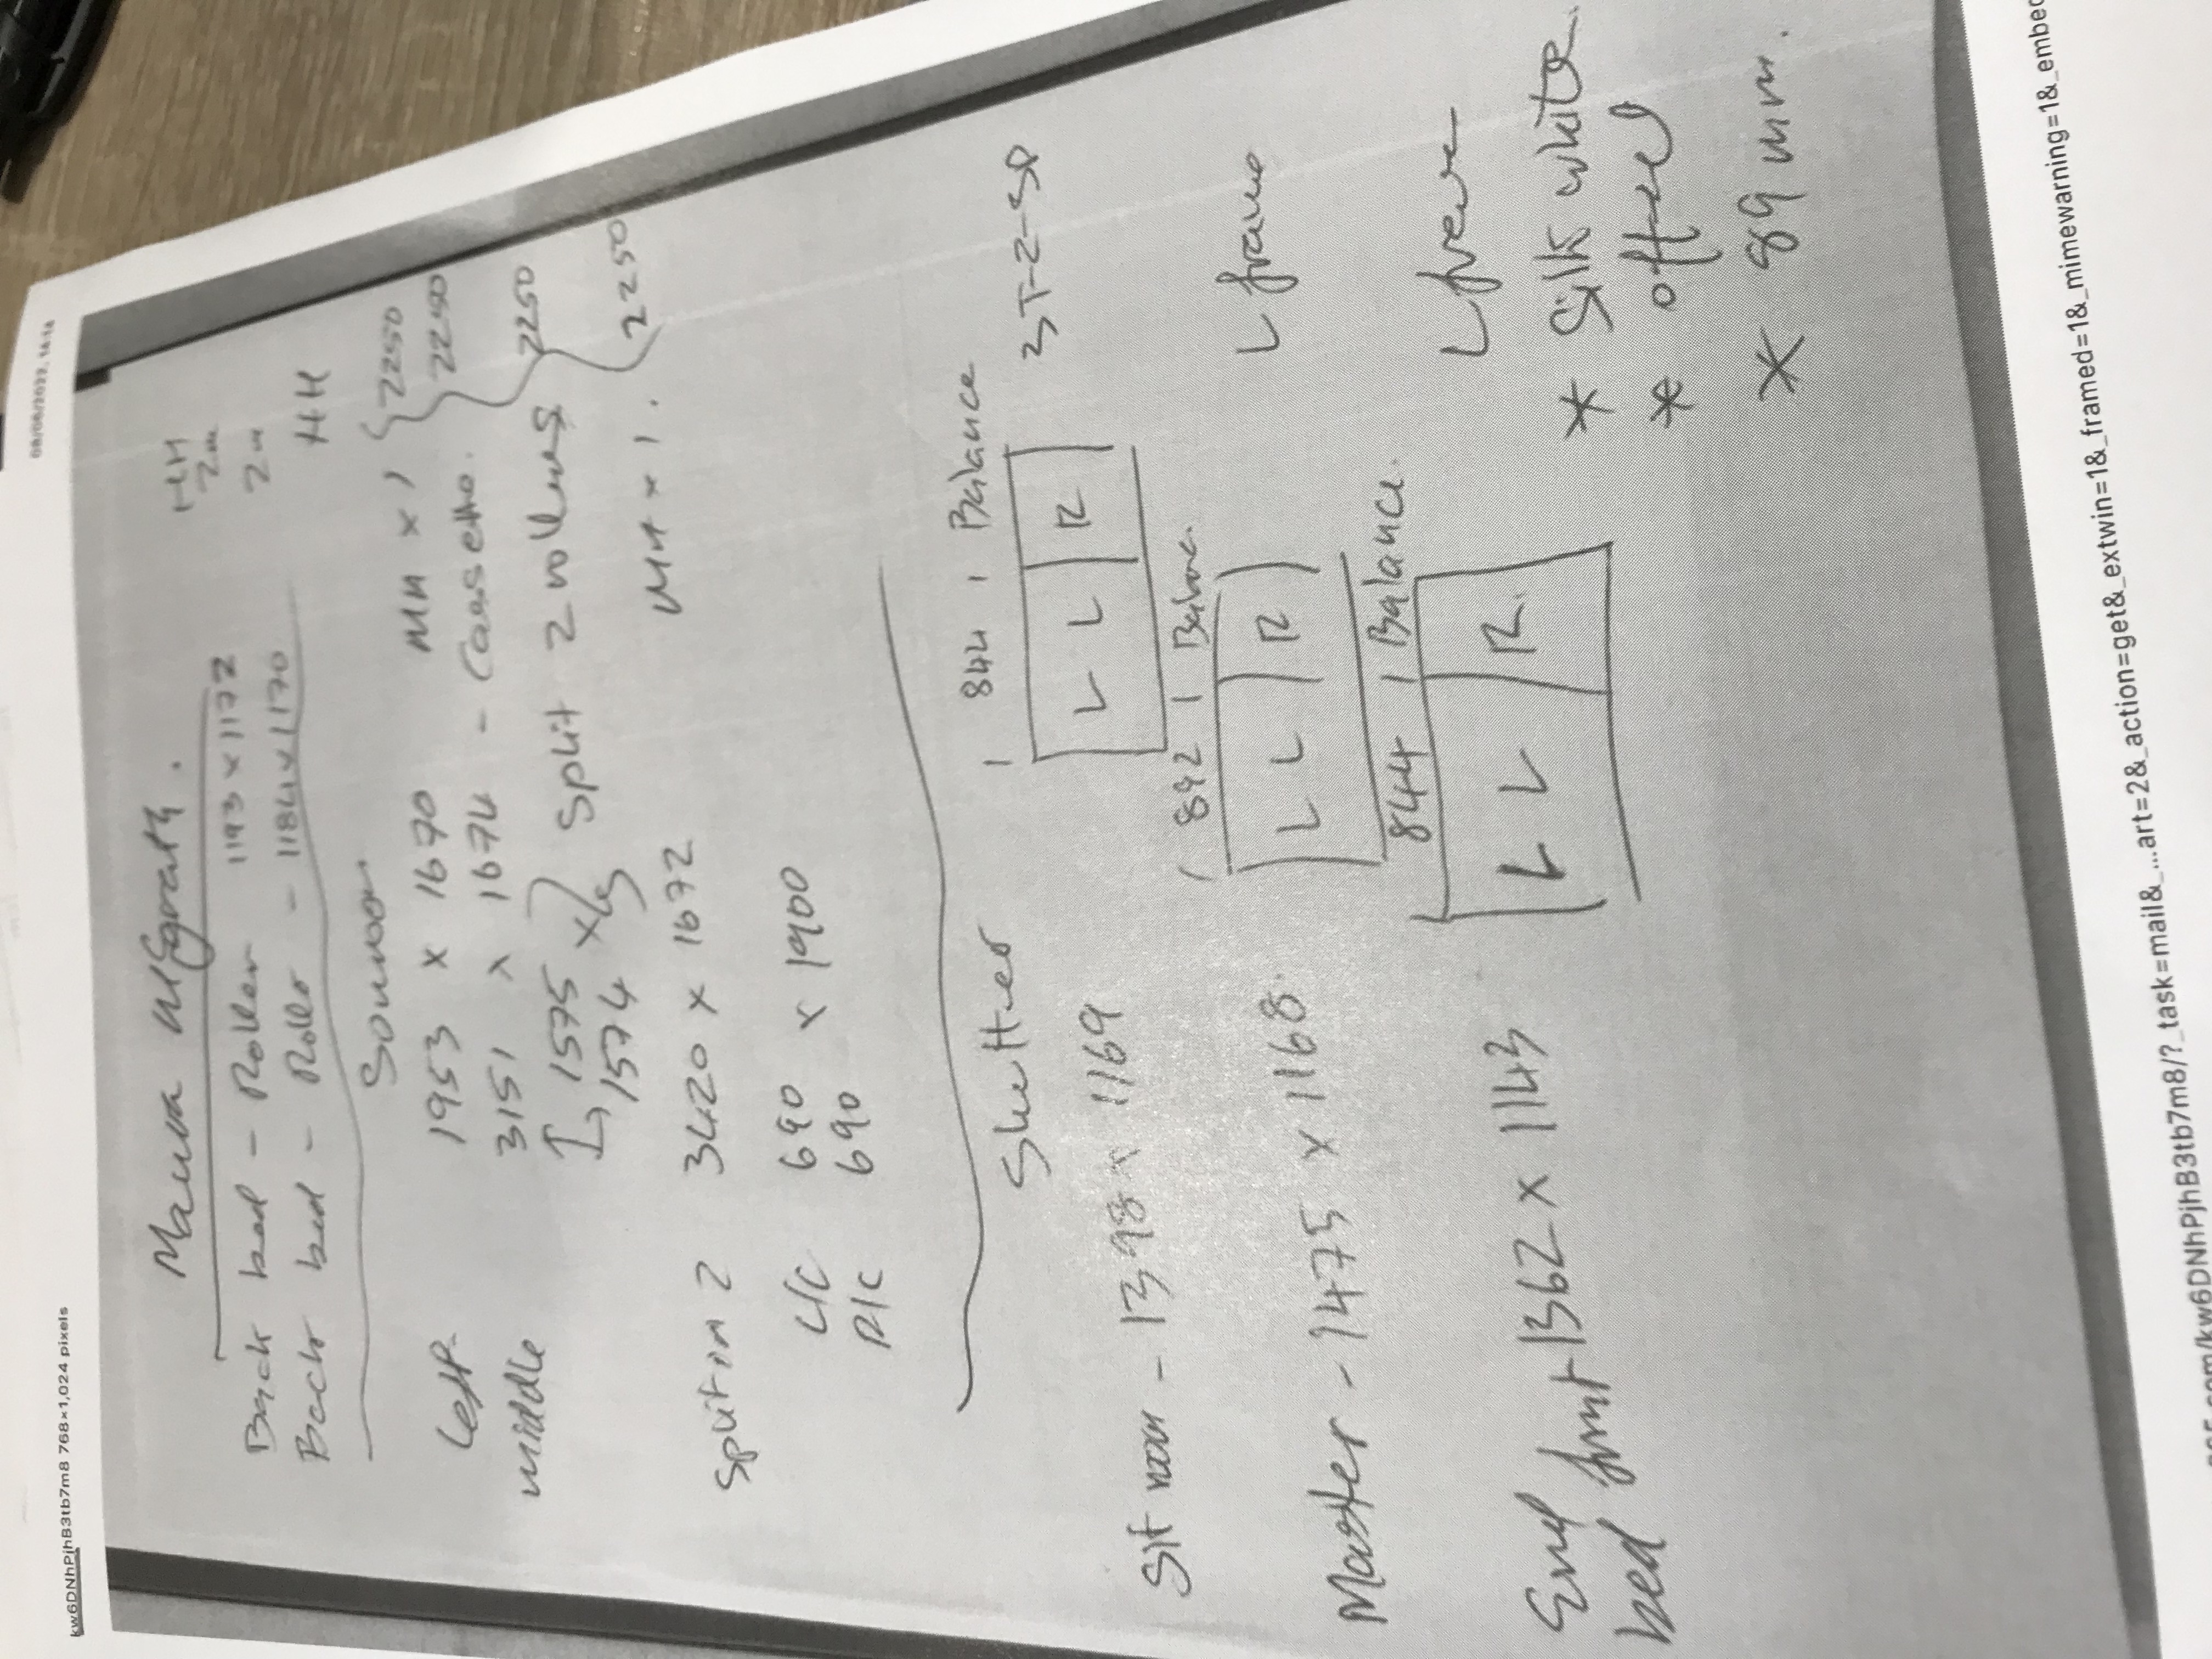 kw6DNhPjhB3tb7m8 768×1,024 pixels
Back bed - Roller 1193 x 1172 2m
Back bed - Roller - 1184 x 1170 2m
HH
Left 1953 x 1670 MH x 1 2250
2250
middle 3151 x 1674 - Cassette.
1575 Split 2 rollers 2250
1574
Split in 2 3420 x 1672 MH x 1. 2250
L/C 690 x 1900
R/C 690
Shutter
1 844 1 Balance
Sit room - 1398 x 1169 L L R 3T-Z-SP
1 842 1 Balance.
Master - 1475 x 1168. L L R L frame
844 1 Balance.
bed front 1362 x 1143 L L R. L frame
* Silk white
* offset
* 89 mm.
/kw6DNhPjhB3tb7m8/?_task=mail&_...art=2&_action=get&_extwin=1&_framed=1&_mimewarning=1&_embed